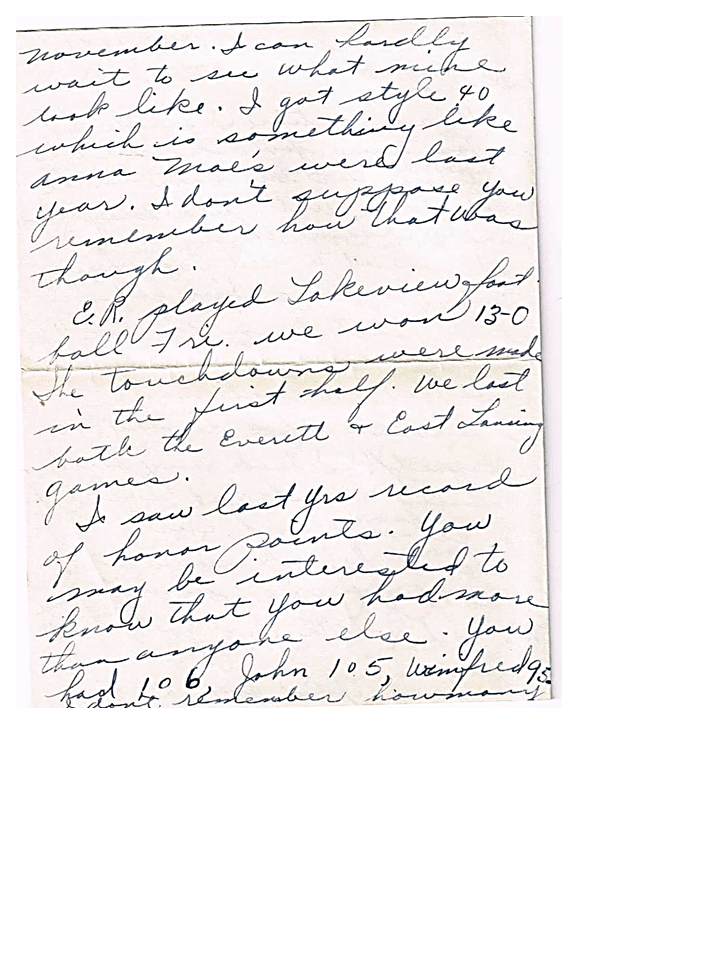 november. I can hardly
wait to see what mine
look like. I got style 40
which is something like
anna Mae's were last
year. I don't suppose you
remember how that was
though.
E.R. played Lakeview foot-
ball Fri. we won 13-0
The touchdowns were made
in the first half. We lost
both the Everett & East Lansing
games.
I saw last yrs record
of honor points. You
may be interested to
know that you had more
than anyone else. You
had 106, John 105, Winifred 95.
I don't remember how many